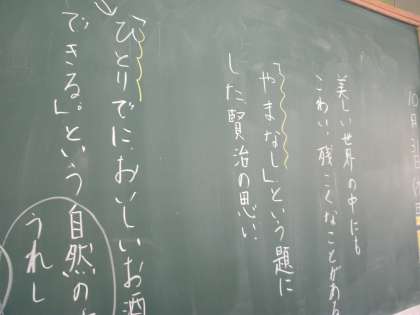 10月31日
美しい世界の中にも
こわい、残こくなことがある
「やまなし」という題に
した賢治の思い
「ひとりでにおいしいお酒
できる。」という自然の
うれし